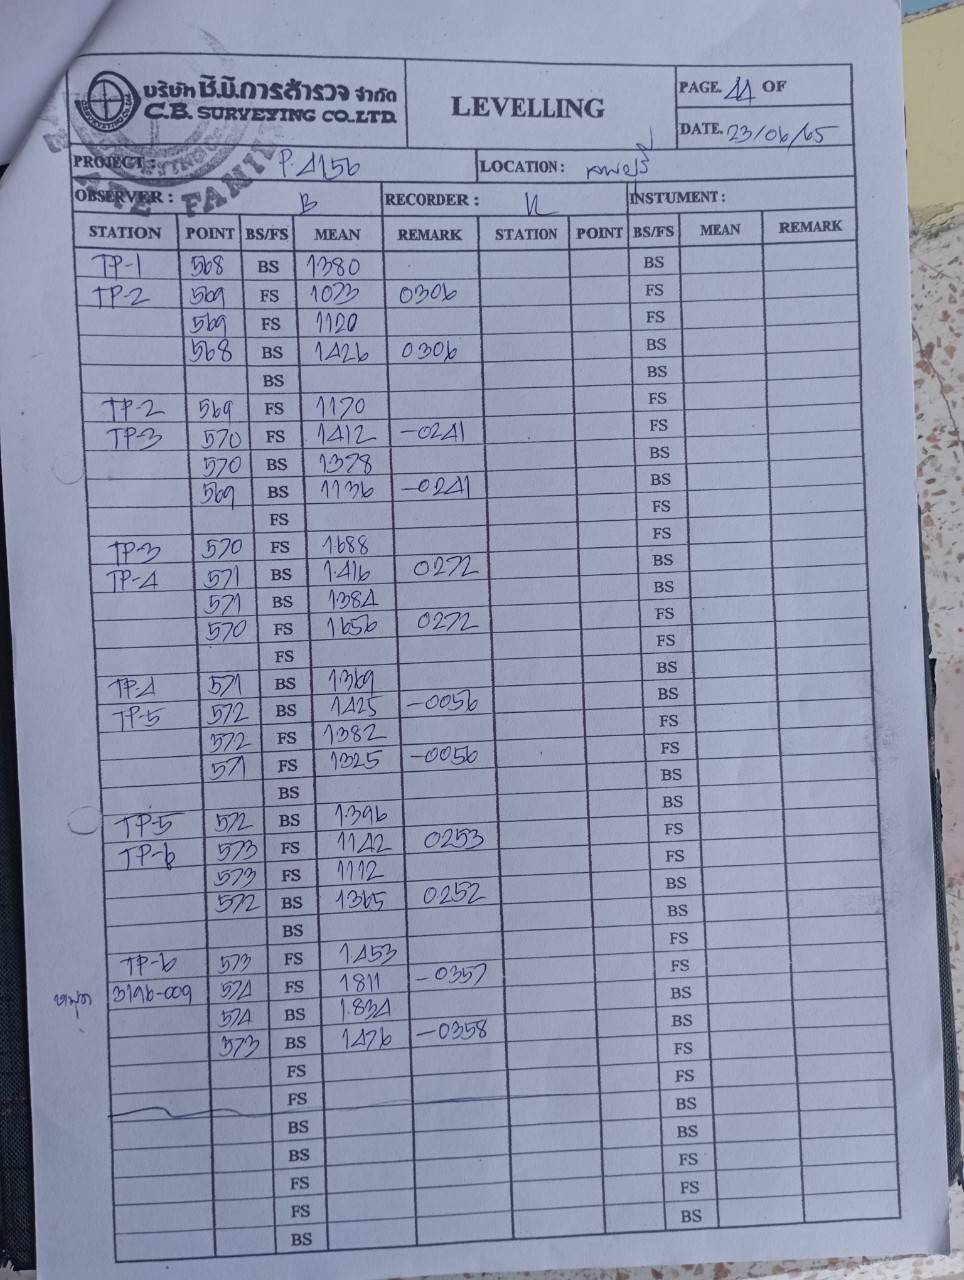 บริษัท ซี.บี.การสำรวจ จำกัด
C.B. SURVEYING CO.,LTD.
LEVELLING
PAGE. 11 OF
DATE. 23/06/65
PROJECT: P.4156
LOCATION:
OBSERVER: B
RECORDER:
INSTUMENT:
STATION POINT BS/FS MEAN REMARK STATION POINT BS/FS MEAN REMARK
TP-1 568 BS 1380 BS
TP-2 569 FS 1073 0306 FS
569 FS 1120 FS
568 BS 1426 0306 BS
BS BS
TP-2 569 FS 1170 FS
TP-3 570 FS 1412 -0241 FS
570 BS 1378 BS
569 BS 1136 -0241 BS
FS FS
TP-3 570 FS 1688 FS
TP-4 571 BS 1.416 0272 BS
571 BS 1384 BS
570 FS 1656 0272 FS
FS FS
TP-4 571 BS 1369 BS
TP-5 572 BS 1425 -0056 BS
572 FS 1382 FS
571 FS 1325 -0056 FS
BS BS
TP-5 572 BS 1.396 BS
TP-6 573 FS 1142 0253 FS
573 FS 1112 FS
572 BS 1365 0252 BS
BS BS
TP-6 573 FS 1453 FS
หมุด 3196-009 574 FS 1811 -0357 FS
574 BS 1.834 BS
573 BS 1476 -0358 BS
FS FS
FS FS
BS BS
BS BS
FS FS
FS FS
BS BS